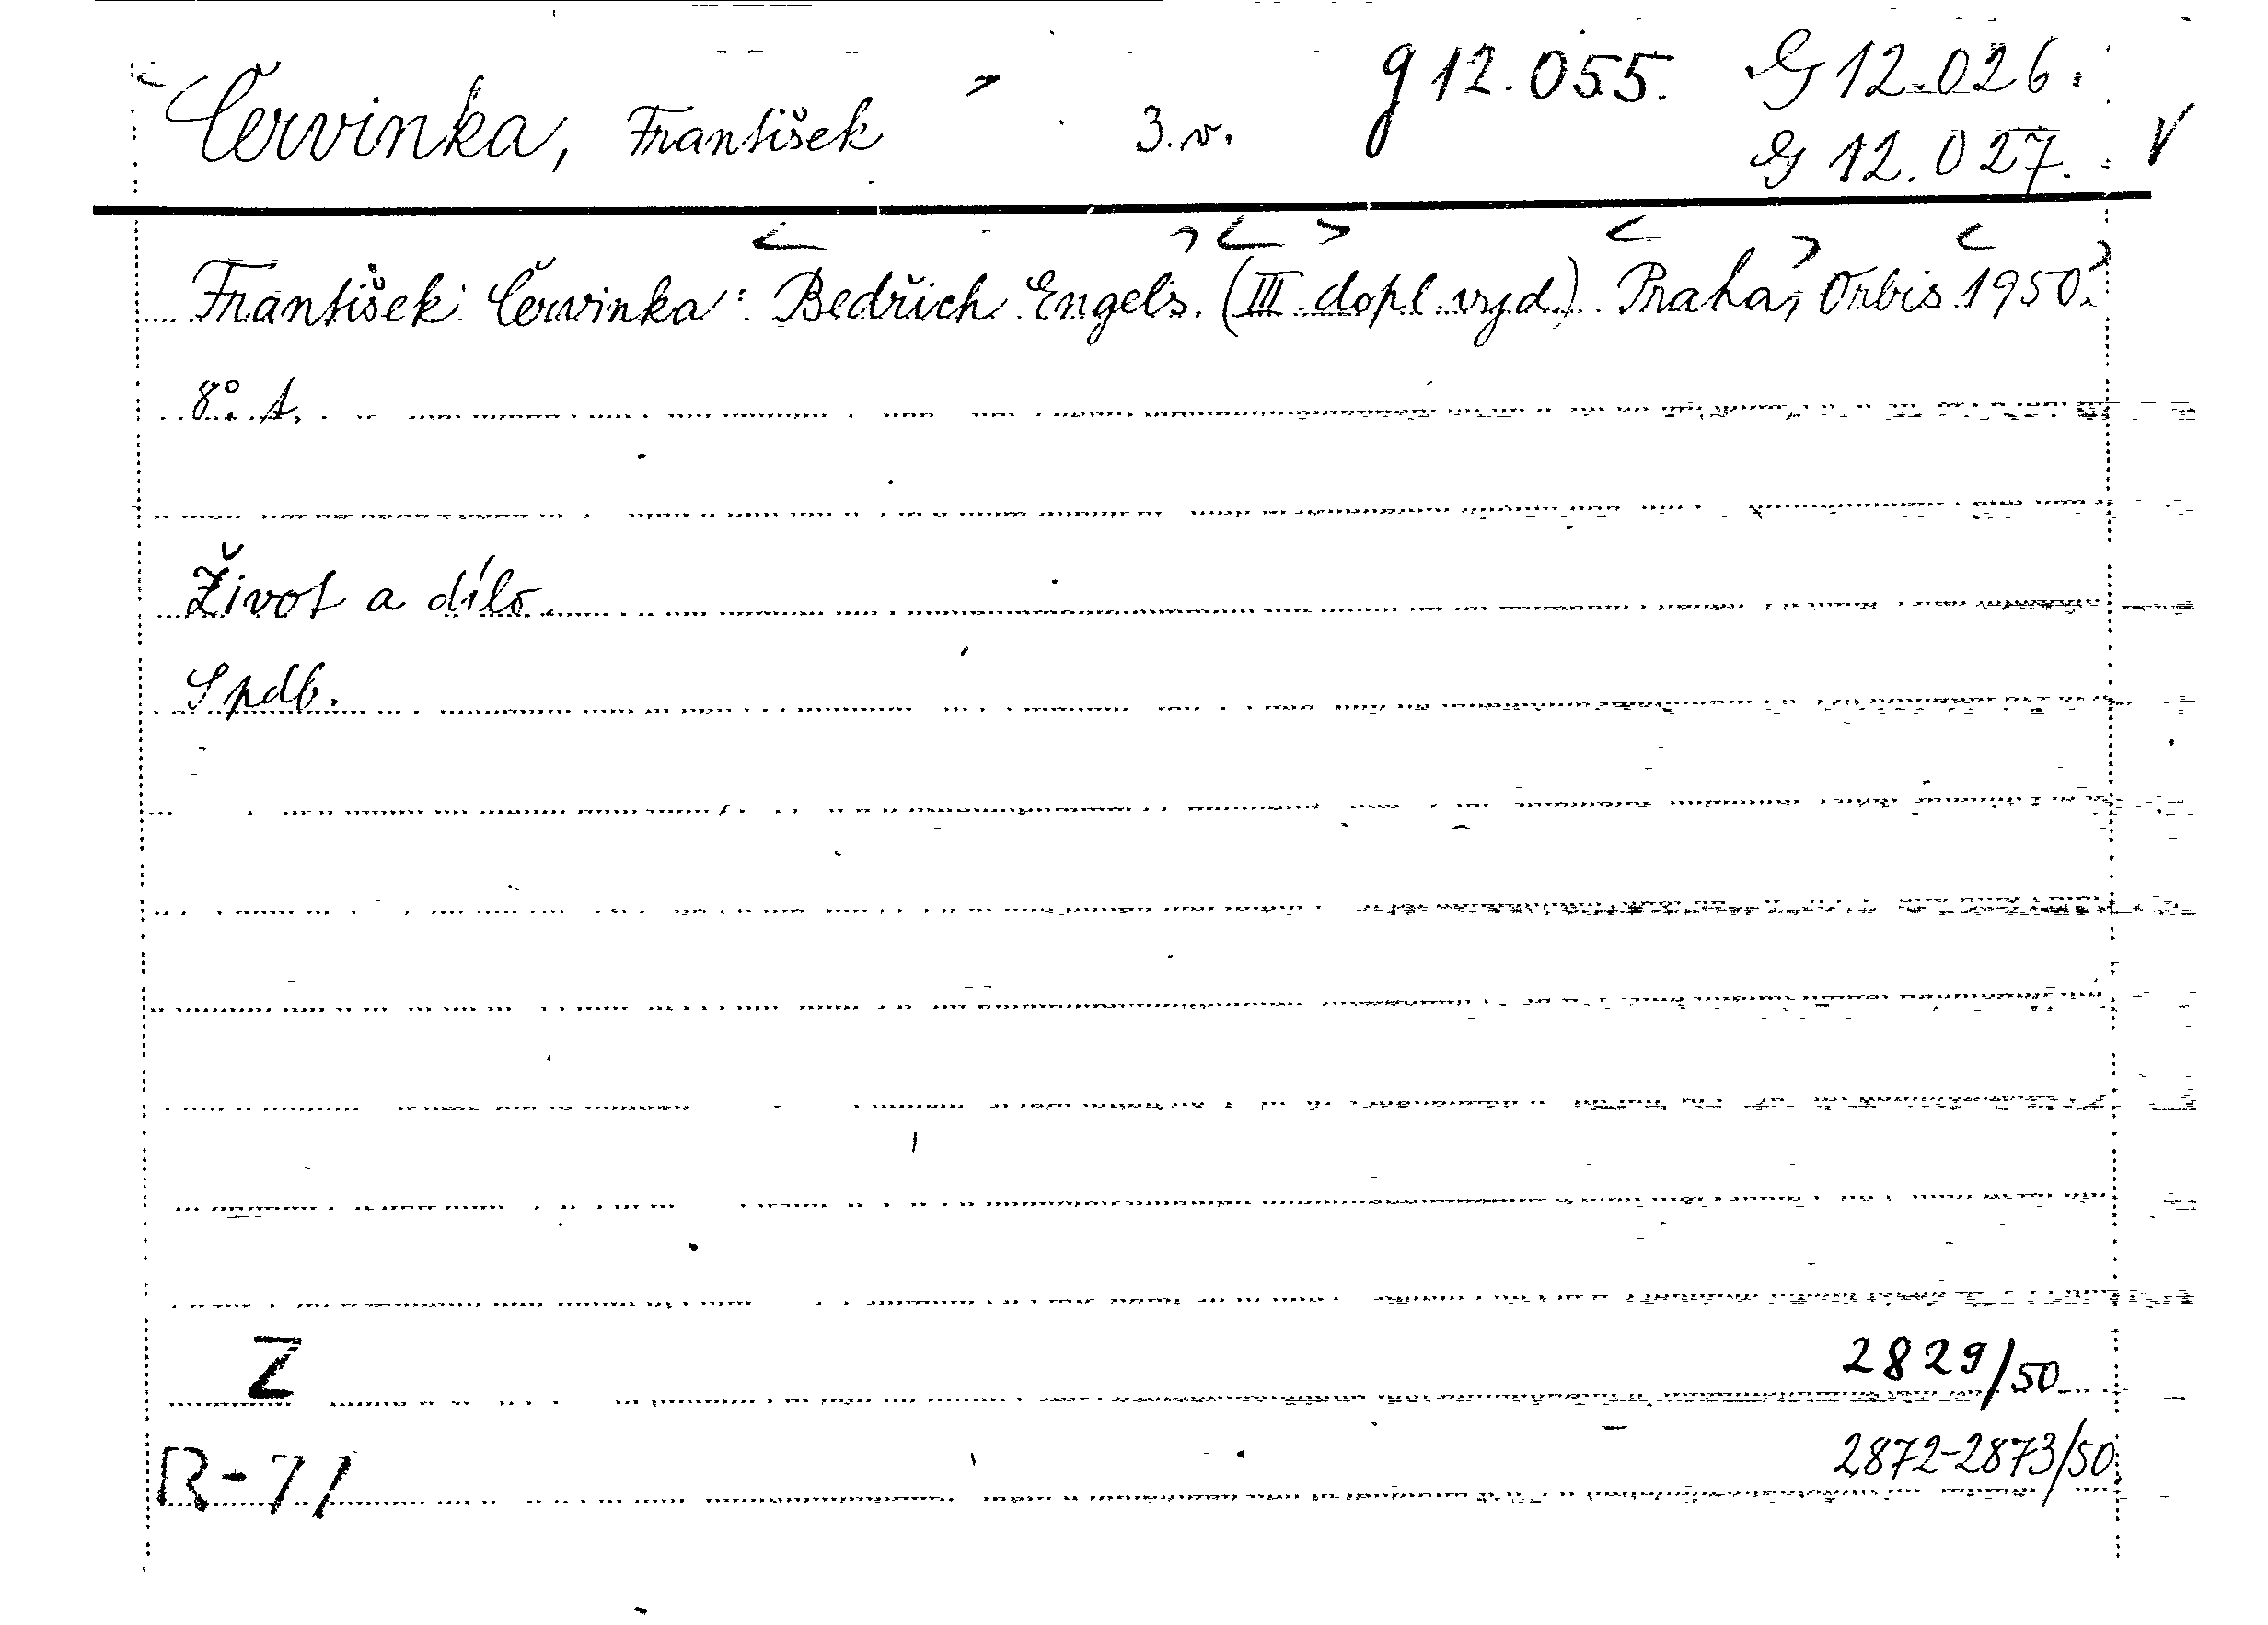 Červinka, František 3.v. g 12.055. G 12.026.
G 12.027. V
František Červinka: Bedřich Engels. (III. dopl. vyd.). Praha, Orbis 1950.
8°. s.
Život a dílo.
Spdb.
Z 2829/50
R-71 2872-2873/50